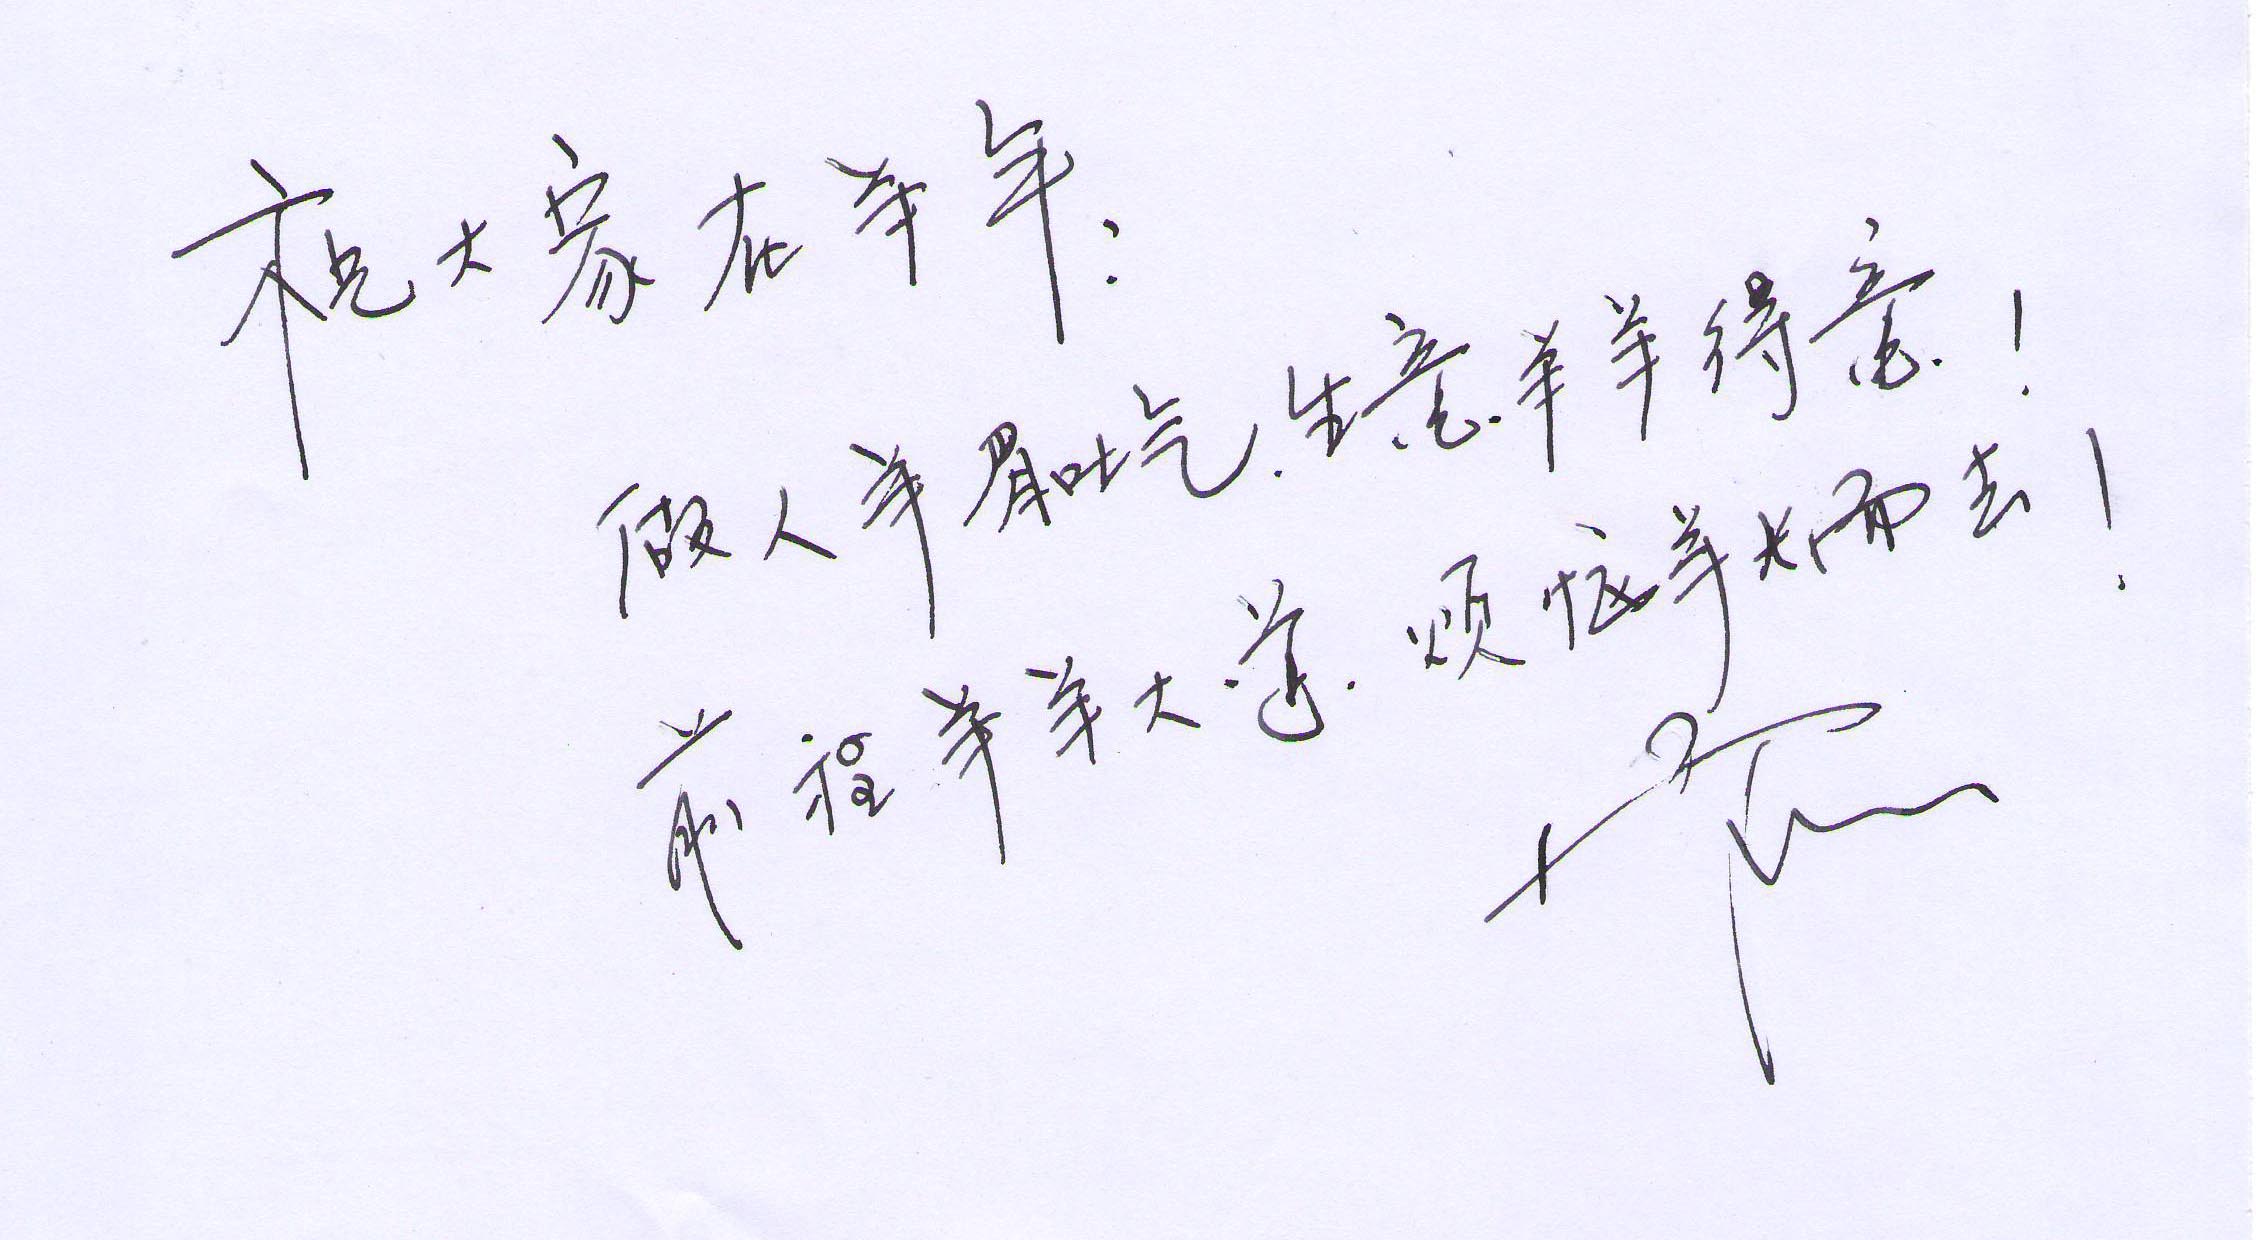 祝大家在羊年：
做人羊眉吐气.生意羊羊得意！
前程羊羊大道.烦恼羊长而去！